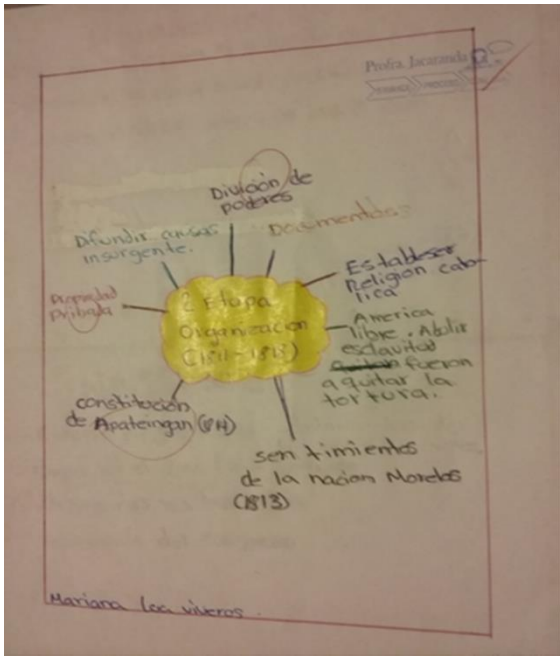 Profra. Jacaranda
AVANCE PROCESO
Divición de
poderes
Documentos:
Difundir causas
insurgente.
Establecer
Religion cato-
lica
Propiedad
Pribada
2 Etapa
Organización
(1811-1815)
America
libre. Abolir
esclavitud
fueron
a quitar la
tortura.
constitución
de Apatzingan (1814)
sentimientos
de la nacion Morelos
(1813)
Mariana Loa viveros.